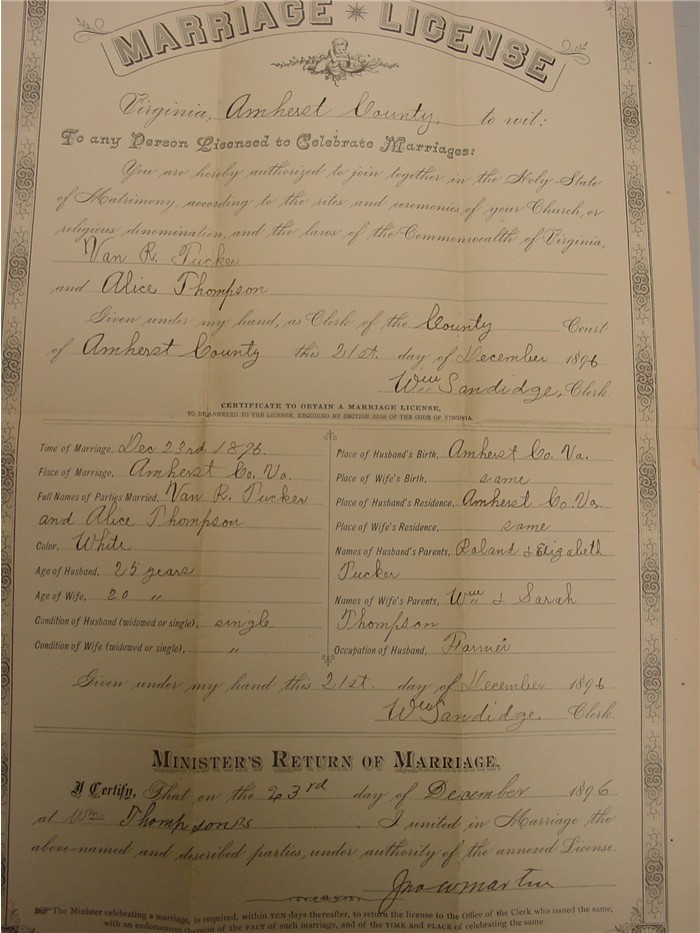 MARRIAGE LICENSE
Virginia, Amherst County, to wit:
To any Person Licensed to Celebrate Marriages:
You are hereby authorized to join together in the Holy State
of Matrimony, according to the rites and ceremonies of your Church, or
religious denomination, and the laws of the Commonwealth of Virginia,
Van R. Tucker
and Alice Thompson
Given under my hand, as Clerk of the County Court
of Amherst County this 21st. day of December 1896
Wm Sandidge, Clerk.
CERTIFICATE TO OBTAIN A MARRIAGE LICENSE,
TO BE ANNEXED TO THE LICENSE, REQUIRED BY SECTION OF THE CODE OF VIRGINIA.
Time of Marriage, Dec 23rd 1896.
Place of Marriage, Amherst Co. Va.
Full Names of Parties Married, Van R. Tucker
and Alice Thompson
Color, White
Age of Husband, 25 years
Age of Wife, 20 "
Condition of Husband (widowed or single), single
Condition of Wife (widowed or single), "
Place of Husband's Birth, Amherst Co. Va.
Place of Wife's Birth, same
Place of Husband's Residence, Amherst Co. Va
Place of Wife's Residence, same
Names of Husband's Parents, Roland & Elizabeth
Tucker
Names of Wife's Parents, Wm & Sarah
Thompson
Occupation of Husband, Farmer
Given under my hand this 21st. day of December 1896
Wm Sandidge. Clerk
MINISTER'S RETURN OF MARRIAGE.
I Certify, That on the 23rd day of December 1896
at Wm Thompson's I united in Marriage the
above-named and described parties, under authority of the annexed License.
Jno W Martin
The Minister celebrating a marriage, is required, within TEN days thereafter, to return the license to the Office of the Clerk who issued the same,
with an endorsement thereon of the FACT of such marriage, and of the TIME and PLACE of celebrating the same